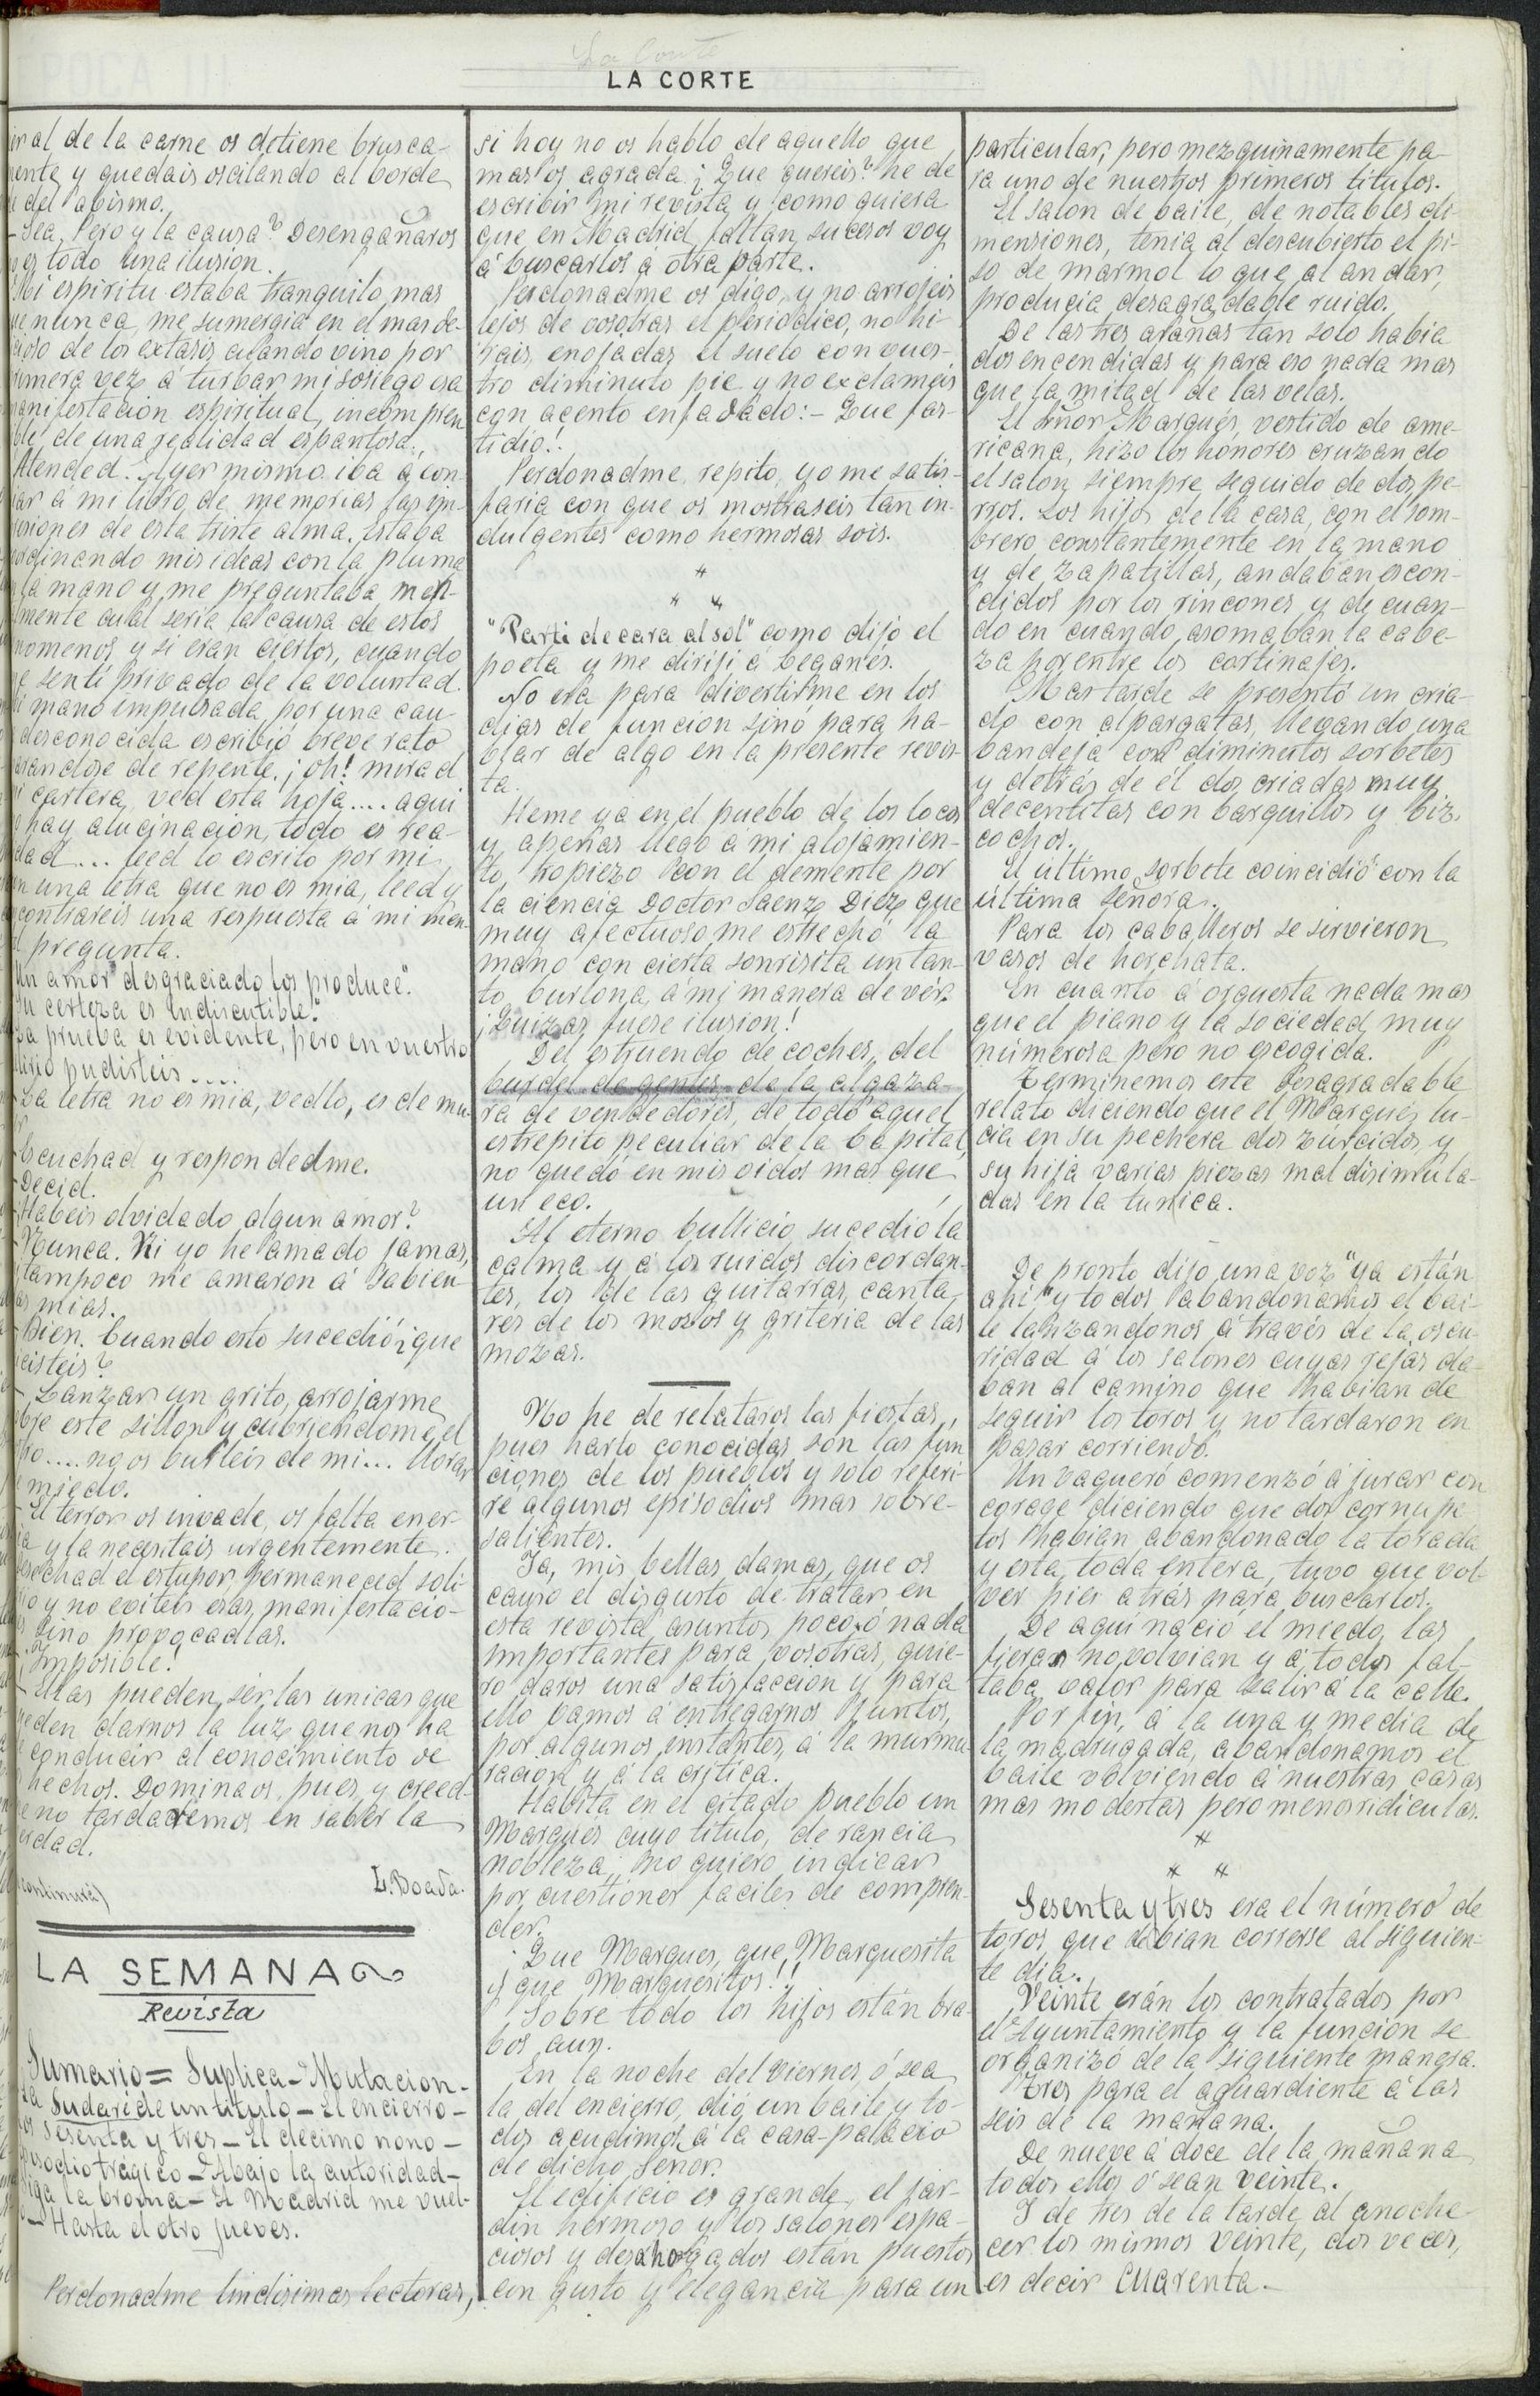 La Corte
LA CORTE
al de la carne os detiene brusca-
mente y quedais oscilando al borde
del abismo.
- Sea. Pero y la causa? Desengañaros
es todo una ilusion.
Mi espiritu estaba tranquilo mas
que nunca, me sumergia en el mar de-
de los extasis cuando vino por
primera vez á turbar mi sosiego esa
manifestacion espiritual, incompren
ble, de una realidad espantosa.
Atended. Ayer mismo iba á con-
á mi libro de memorias las im-
presiones de esta triste alma. Estaba
ordenando mis ideas con la pluma
la mano y me preguntaba men-
mente cual seria la causa de estos
nomenos y si eran ciertos, cuando
me senti privado de la voluntad.
mi mano impulsada por una cau
desconocida escribió breve rato
parandose de repente. ¡Oh! mirad
mi cartera, ved esta hoja.... aqui
no hay alucinacion, todo es rea-
dad... leed lo escrito por mi
en una letra que no es mia, leed y
encontrareis una respuesta á mi men-
pregunta.
Un amor desgraciado los produce".
Su certeza es indiscutible."
La prueba es evidente, pero en vuestro
delirio pudisteis....
La letra no es mia, vedlo, es de mu-
Escuchad y respondedme.
- Decid.
- Habeis olvidado algun amor?
- Nunca. Ni yo he amado jamas,
tampoco me amaron á sabien-
das mias.
- Bien. Cuando esto sucedió ¿que
hicisteis?
- Lanzar un grito, arrojarme
sobre este sillon y cubriendome el
.... no os burleis de mi... llorar
de miedo.
- El terror os invade, os falta ener-
gia y la necesitais urgentemente.
desechad el estupor, permaneced soli-
y no eviteis esas manifestacio-
sino provocadlas.
- ¡Imposible!
- Ellas pueden ser las unicas que
pueden darnos la luz que nos ha
de conducir al conocimiento de
hechos. Dominaos, pues, y creed-
que no tardaremos en saber la
verdad.
L. Doada.
(continuará)
LA SEMANA
Revista
Sumario = Suplica - Mutacion -
La Sudari de un titulo - El encierro -
Los sesenta y tres - El decimo nono -
Episodio trágico - Abajo la autoridad -
Siga la broma - A Madrid me vuel-
- Hasta el otro jueves.
Perdonadme lindisimas lectoras,
si hoy no os hablo de aquello que
mas os agrada. ¿Que quereis? he de
escribir mi revista y como quiera
que en Madrid faltan sucesos voy
á buscarlos a otra parte.
Perdonadme os digo, y no arrojeis
lejos de vosotras el periodico, no hi-
rais, enojadas el suelo con vues-
tro diminuto pie y no exclameis
con acento enfadado:- Que fas-
tidio!.
Perdonadme, repito, yo me satis-
faria con que os mostraseis tan in-
dulgentes como hermosas sois.
*
* *
"Parti de cara al sol" como dijo el
poeta y me dirijí á Leganés.
No era para divertirme en los
dias de funcion sinó para ha-
blar de algo en la presente revis-
ta.
Heme ya en el pueblo de los locos
y apenas llego á mi alojamien-
to, tropiezo con el demente por
la ciencia Doctor Saenz Diez que
muy afectuoso me estrechó la
mano con cierta sonrisita un tan-
to burlona, á mi manera de vér.
¡Quizas fuese ilusion!
Del estruendo de coches, del
burdel de gentes de la algaza-
ra de vendedores, de todo aquel
estrepito peculiar de la Capital,
no quedó en mis oidos mas que
un eco.
Al eterno bullicio, sucedió la
calma y á los ruidos discordan-
tes, los de las guitarras, canta-
res de los mozos y griteria de las
mozas.
No he de relataros las fiestas,
pues harto conocidas son las fun
ciones de los pueblos y solo referi-
ré algunos episodios mas sobre-
salientes.
Ya, mis bellas damas, que os
causo el disgusto de tratar en
esta revista, asuntos poco ó nada
importantes para vosotras, quie-
ro daros una satisfaccion y para
ello vamos á entregarnos juntos,
por algunos instantes, á la murmu-
racion y á la crítica.
Habita en el citado pueblo un
Marques cuyo titulo, de rancia
nobleza, no quiero indicar
por cuestiones faciles de compren-
der.
¡Que Marques, que Marquesita
y que Marquesitos!!
Sobre todo los hijos están bra-
bos aun.
En la noche del Viernes, ó sea
la del encierro, dió un baile y to-
dos acudimos á la casa-palacio
de dicho Señor.
El edificio es grande, el jar-
din hermoso y los salones espa-
ciosos y desahogados están puestos
con gusto y elegancia para un
particular, pero mezquinamente pa-
ra uno de nuestros primeros titulos.
El salon de baile, de notables di-
mensiones, tenia al descubierto el pi-
so de marmol lo que, al andar,
producia desagradable ruido.
De las tres arañas tan solo habia
dos encendidas y para eso nada mas
que la mitad de las velas.
El Señor Marqués, vestido de ame-
ricana, hizo los honores cruzando
el salon, siempre seguido de dos pe-
rros. Los hijos de la casa, con el som-
brero constantemente en la mano
y de zapatillas, andaban escon-
didos por los rincones y de cuan-
do en cuando asomaban la cabe-
za por entre los cortinajes.
Mas tarde se presentó un cria-
do con alpargatas, llegando una
bandeja con diminutos sorbetes
y detrás de él dos criadas muy
decentitas con barquillos y biz-
cochos.
El último sorbete coincidió con la
última Señora.
Para los caballeros se sirvieron
vasos de horchata.
En cuanto á orquesta nada mas
que el piano y la sociedad muy
númerosa pero no escogida.
Terminemos este desagradable
relato diciendo que el Marqués lu-
cia en su pechera dos zurcidos y
su hija varias piezas mal disimula-
das en la tunica.
De pronto dijo una voz "ya están
ahi" y todos abandonamos el bai-
le lanzandonos á través de la oscu-
ridad á los salones cuyas rejas da-
ban al camino que habian de
seguir los toros y no tardaron en
pasar corriendo.
Un vaquero comenzó á jurar con
corage diciendo que dos cornupe-
tos habian abandonado la torada
y esta toda entera, tuvo que vol-
ver pies atrás para buscarlos.
De aqui nació el miedo, las
fieras no volvian y á todos fal-
taba valor para salir á la calle.
Por fin, á la una y media de
la madrugada, abandonamos el
baile volviendo á nuestras casas
mas modestas pero menos ridiculas.
*
* *
Sesenta y tres era el número de
toros que debian correrse al siguien-
te dia.
Veinte erán los contratados por
el Ayuntamiento y la funcion se
organizó de la siguiente manera.
Tres para el aguardiente á las
seis de la mañana.
De nueve á doce de la mañana
todos ellos ó sean veinte.
Y de tres de la tarde al anoche-
cer los mismos veinte, dos veces,
es decir cuarenta.-